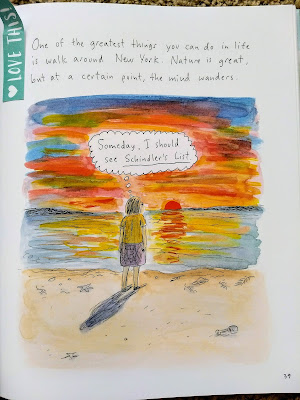 LOVE THIS!
One of the greatest things you can do in life
is walk around New York. Nature is great,
but at a certain point, the mind wanders.
Someday, I should
see Schindler's List.
39